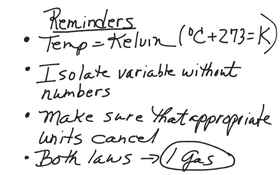 Reminders
• Temp = Kelvin (°C + 273 = K)
• Isolate variable without
numbers
• Make sure that appropriate
units cancel
• Both laws → 1 gas